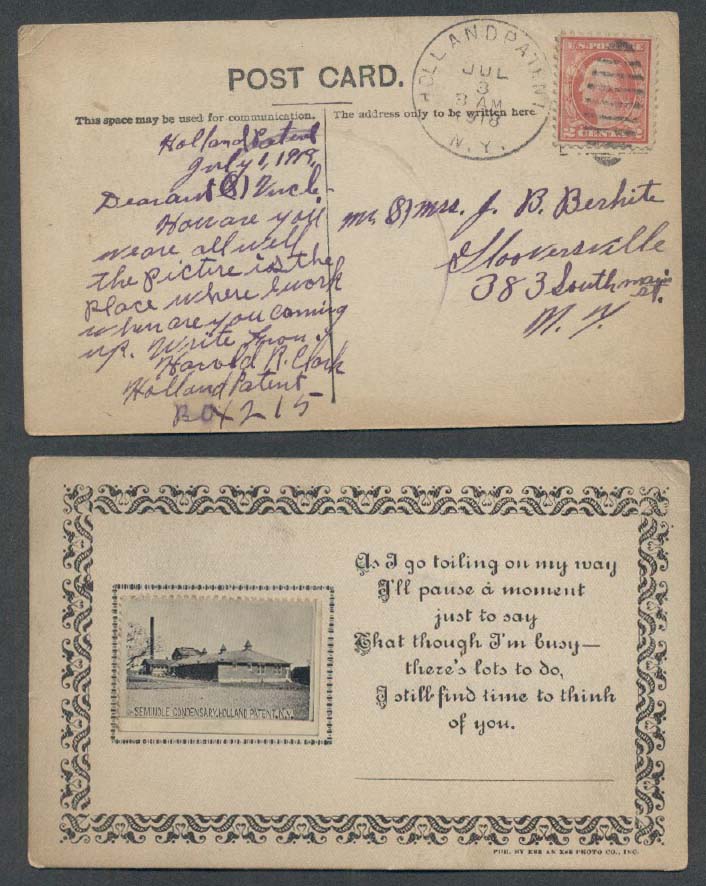 POST CARD.
HOLLAND PATENT
JUL
3
3 AM
1918
N.Y.
U.S. POSTAGE
2 CENTS 2
This space may be used for communication.
The address only to be written here
Holland Patent
July 1, 1918,
Dear aunt & Uncle
How are you
we are all well
the picture is the
place where I work
when are you coming
up. Write soon
Harold R. Clark
Holland Patent
Box 215
Mr. & Mrs. J. B. Berhite
Gloversville
383 South main
st.
N. Y.
SEMINOLE CONDENSARY, HOLLAND PATENT, N.Y.
As I go toiling on my way
I'll pause a moment
just to say
That though I'm busy—
there's lots to do,
I still find time to think
of you.
PUB. BY ESS AN ESS PHOTO CO., INC.